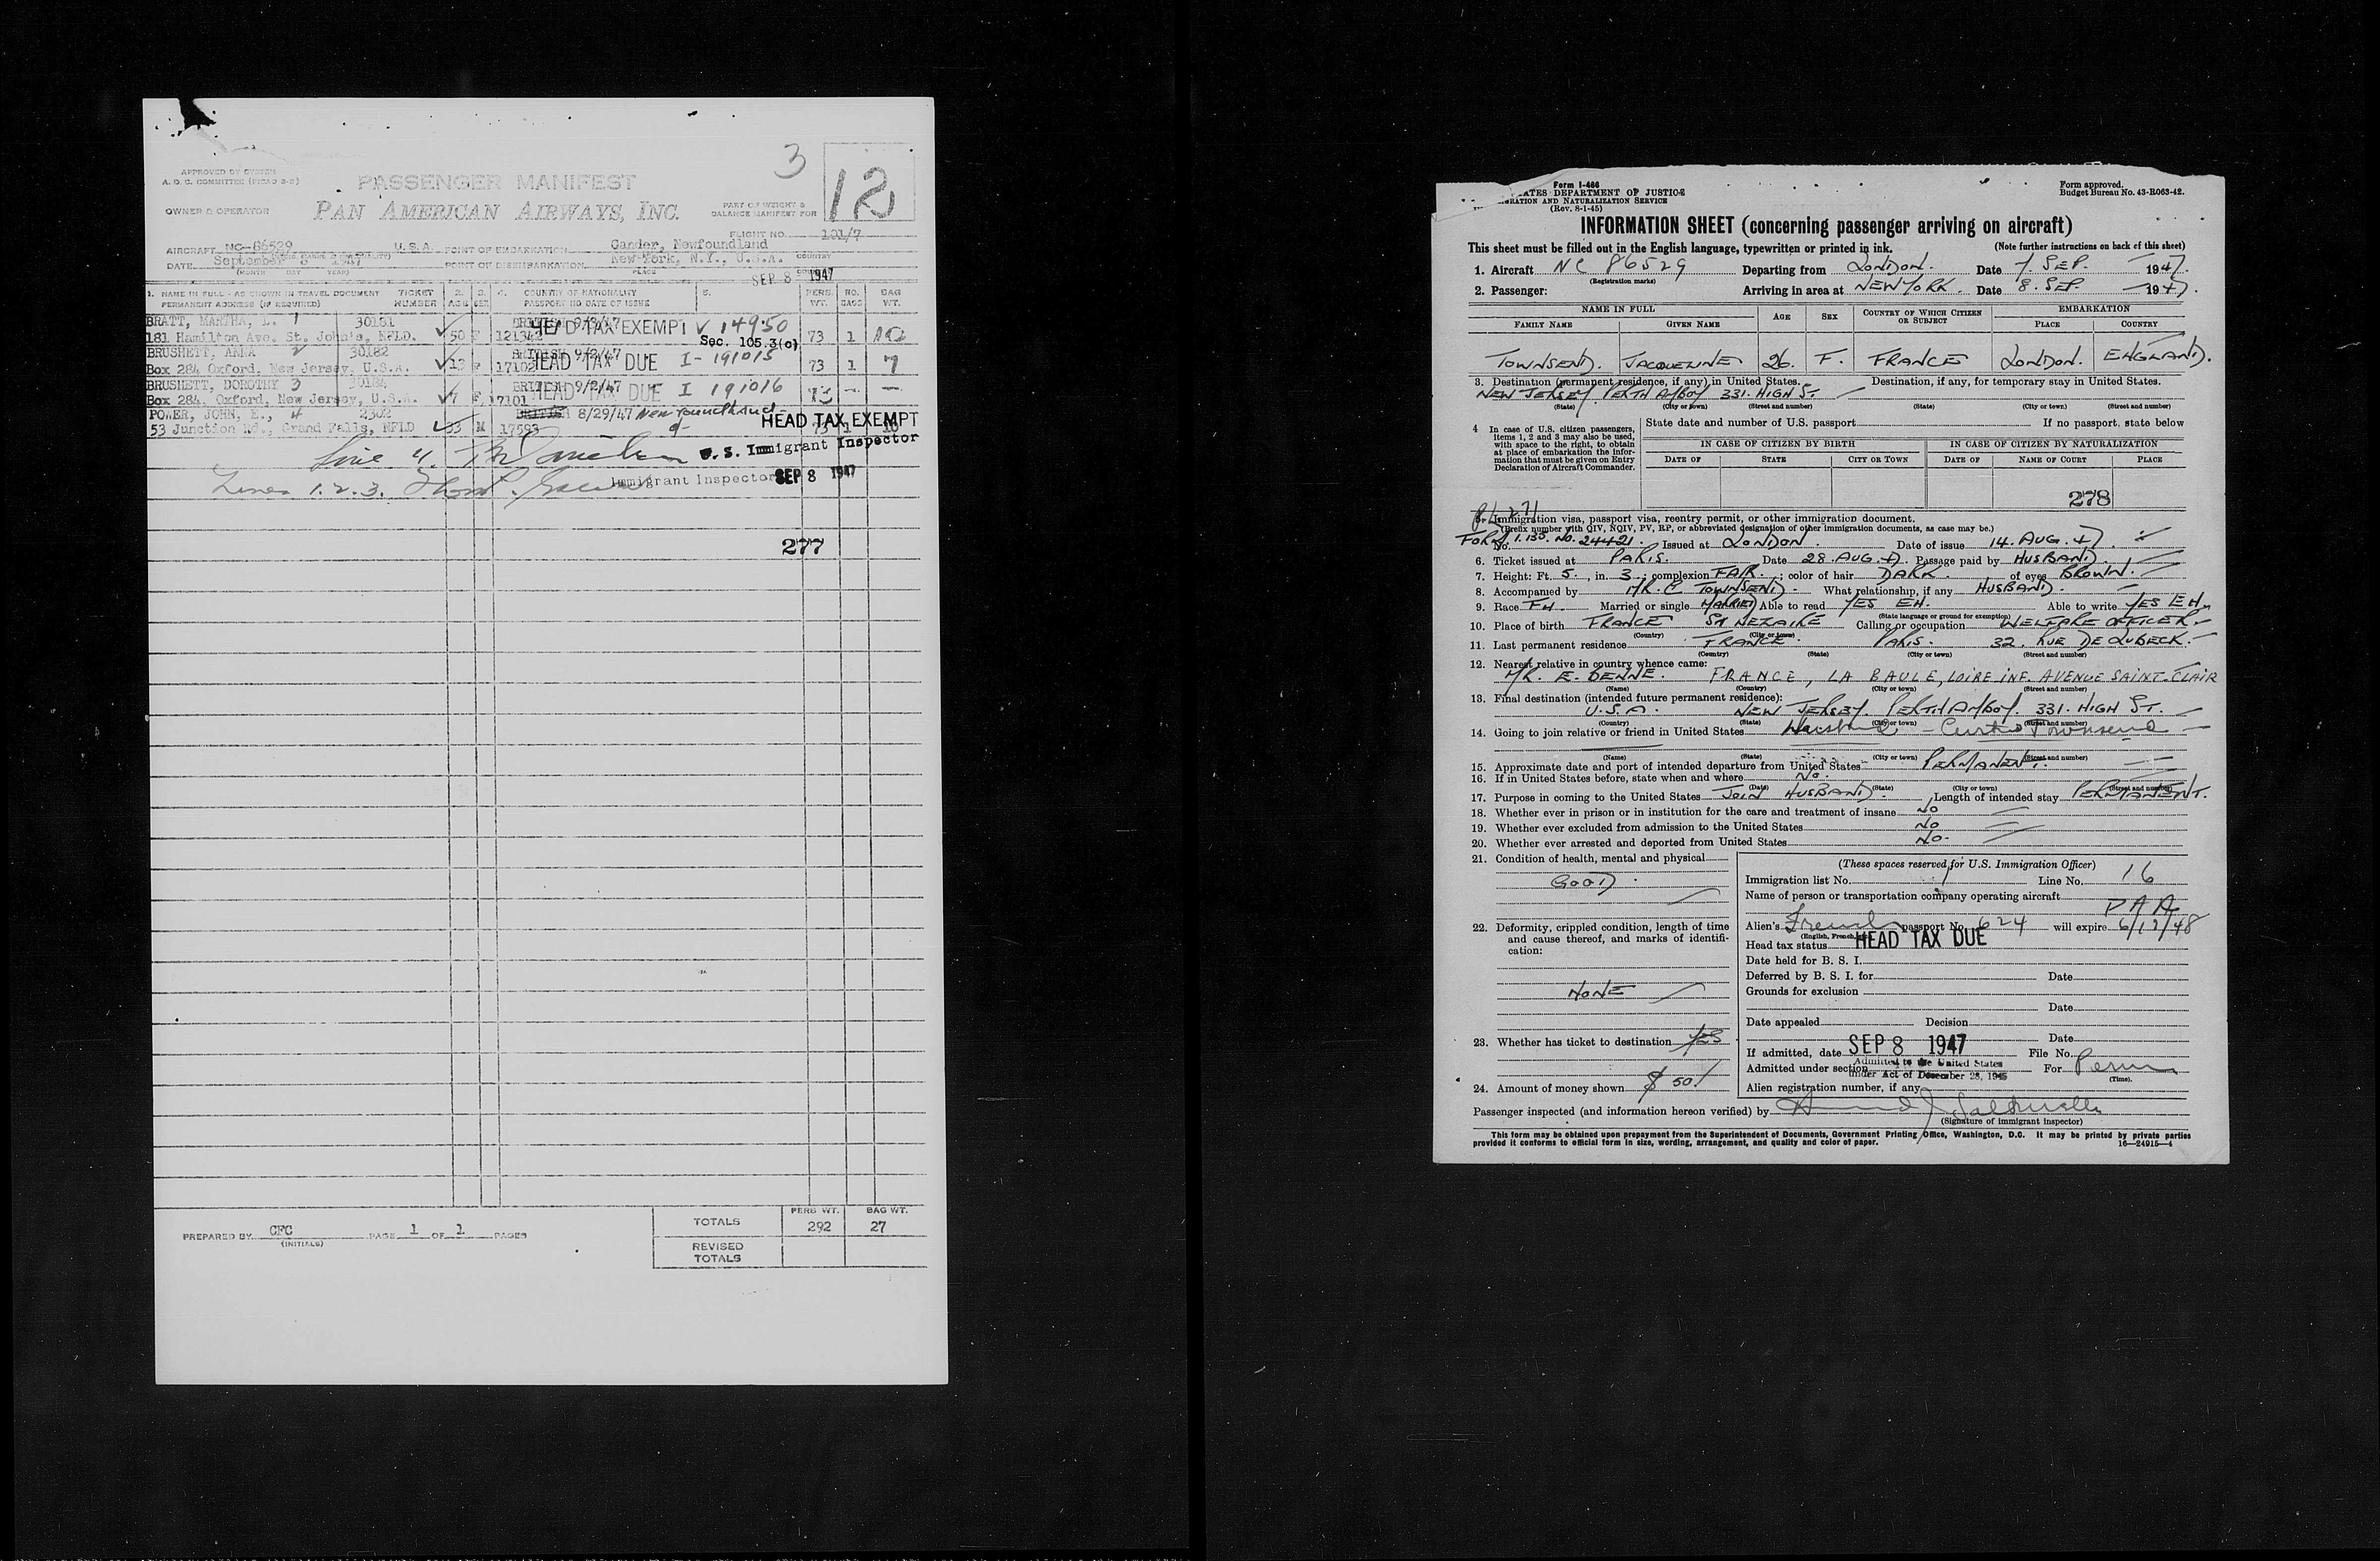 3
12
APPROVED BY SYSTEM
A. O. C. COMMITTEE (PICAO 3-2)
PASSENGER MANIFEST
OWNER & OPERATOR
PAN AMERICAN AIRWAYS, INC.
PART OF WEIGHT &
BALANCE MANIFEST FOR
FLIGHT NO. 101/7
AIRCRAFT NC-86529 U.S.A. POINT OF EMBARKATION Gander, Newfoundland
DATE September 8 1947 POINT OF DISEMBARKATION New York, N.Y., U.S.A. COUNTRY
(MONTH DAY YEAR) PLACE
SEP 8 1947
1. NAME IN FULL - AS SHOWN IN TRAVEL DOCUMENT TICKET 2. 3. 4. COUNTRY OF NATIONALITY 5. PERS. NO. BAG
PERMANENT ADDRESS (IF REQUIRED) NUMBER AGE SEX PASSPORT NO DATE OF ISSUE WT. BAGS WT.
BRATT, MARTHA, L. 1 30181 BRITISH HEAD TAX EXEMPT V 14950
181 Hamilton Ave. St. John's, NFLD. 50 F 121342 Sec. 105.3(c) 73 1
BRUSHETT, ANNA 2 30182 BRITISH 9/2/47 HEAD TAX DUE I-191015
Box 284 Oxford, New Jersey, U.S.A. 13 F 17102 73 1 7
BRUSHETT, DOROTHY 3 30184 BRITISH 9/2/47 HEAD TAX DUE I 191016
Box 284. Oxford, New Jersey, U.S.A. 7 F 17101 73 - -
POWER, JOHN, E., 4 2302 BRITISH 8/29/47 Newfoundland HEAD TAX EXEMPT
53 Junction Rd., Grand Falls, NFLD 33 M 17593 73 1 10
Line 4. U. S. Immigrant Inspector
Lines 1.2.3. Immigrant Inspector SEP 8 1947
277
TOTALS PERS WT. 292 BAG WT. 27
PREPARED BY CFC PAGE 1 OF 1 PAGES
(INITIALS)
REVISED
TOTALS
Form I-466
STATES DEPARTMENT OF JUSTICE
IMMIGRATION AND NATURALIZATION SERVICE
(Rev. 8-1-45)
Form approved.
Budget Bureau No. 43-R063-42.
INFORMATION SHEET (concerning passenger arriving on aircraft)
This sheet must be filled out in the English language, typewritten or printed in ink. (Note further instructions on back of this sheet)
1. Aircraft NC 86529 Departing from LONDON. Date 7. SEP. 1947.
(Registration marks)
2. Passenger: Arriving in area at NEW YORK. Date 8. SEP. 1947.
NAME IN FULL AGE SEX COUNTRY OF WHICH CITIZEN OR SUBJECT EMBARKATION
FAMILY NAME GIVEN NAME PLACE COUNTRY
TOWNSEND. JACQUELINE 26. F. FRANCE LONDON. ENGLAND.
3. Destination (permanent residence, if any) in United States. Destination, if any, for temporary stay in United States.
NEW JERSEY PERTH AMBOY 331. HIGH ST.
(State) (City or town) (Street and number) (State) (City or town) (Street and number)
4 In case of U.S. citizen passengers, items 1, 2 and 3 may also be used, with space to the right, to obtain at place of embarkation the information that must be given on Entry Declaration of Aircraft Commander.
State date and number of U.S. passport If no passport, state below
IN CASE OF CITIZEN BY BIRTH IN CASE OF CITIZEN BY NATURALIZATION
DATE OF STATE CITY OR TOWN DATE OF NAME OF COURT PLACE
278
5. Immigration visa, passport visa, reentry permit, or other immigration document.
(Prefix number with QIV, NQIV, PV, RP, or abbreviated designation of other immigration documents, as case may be.)
FORM I.133. No. 24421. Issued at LONDON. Date of issue 14. AUG. 47.
6. Ticket issued at PARIS. Date 28. AUG. 47. Passage paid by HUSBAND
7. Height: Ft. 5., in. 3.; complexion FAIR.; color of hair DARK. of eyes BROWN.
8. Accompanied by MR. C TOWNSEND. What relationship, if any HUSBAND.
9. Race FH. Married or single MARRIED Able to read YES EH. Able to write YES EH
(State language or ground for exemption)
10. Place of birth FRANCE ST NEZAIRE Calling or occupation WELFARE OFFICER
(Country) (City or town)
11. Last permanent residence FRANCE. PARIS. 32. RUE DE LUBECK.
(Country) (State) (City or town) (Street and number)
12. Nearest relative in country whence came:
MR. E. DENNE. FRANCE, LA BAULE, LOIRE INF. AVENUE SAINT-CLAIR
(Name) (Country) (City or town) (Street and number)
13. Final destination (intended future permanent residence):
U.S.A. NEW JERSEY. PERTH AMBOY. 331. HIGH ST.
(Country) (State) (City or town) (Street and number)
14. Going to join relative or friend in United States Husband - Curtis Townsend
(Name) (State) (City or town) (Street and number)
15. Approximate date and port of intended departure from United States PERMANENT.
16. If in United States before, state when and where No.
(Date) (State) (City or town) (Street and number)
17. Purpose in coming to the United States JOIN HUSBAND. Length of intended stay PERMANENT.
18. Whether ever in prison or in institution for the care and treatment of insane NO
19. Whether ever excluded from admission to the United States NO
20. Whether ever arrested and deported from United States NO.
21. Condition of health, mental and physical
GOOD.
22. Deformity, crippled condition, length of time and cause thereof, and marks of identification:
NONE
23. Whether has ticket to destination YES
24. Amount of money shown $ 50/
(These spaces reserved for U.S. Immigration Officer)
Immigration list No. 1 Line No. 16
Name of person or transportation company operating aircraft
PAA
Alien's French passport No. 624 will expire 6/12/48
(English, French,
Head tax status HEAD TAX DUE
Date held for B. S. I.
Deferred by B. S. I. for Date
Grounds for exclusion
Date
Date appealed Decision
Date
If admitted, date SEP 8 1947 File No.
Admitted under section Admitted to the United States under Act of December 28, 1945 For Perm
(Time).
Alien registration number, if any
Passenger inspected (and information hereon verified) by
(Signature of immigrant inspector)
This form may be obtained upon prepayment from the Superintendent of Documents, Government Printing Office, Washington, D.C. It may be printed by private parties
provided it conforms to official form in size, wording, arrangement, and quality and color of paper. 16—24915-4